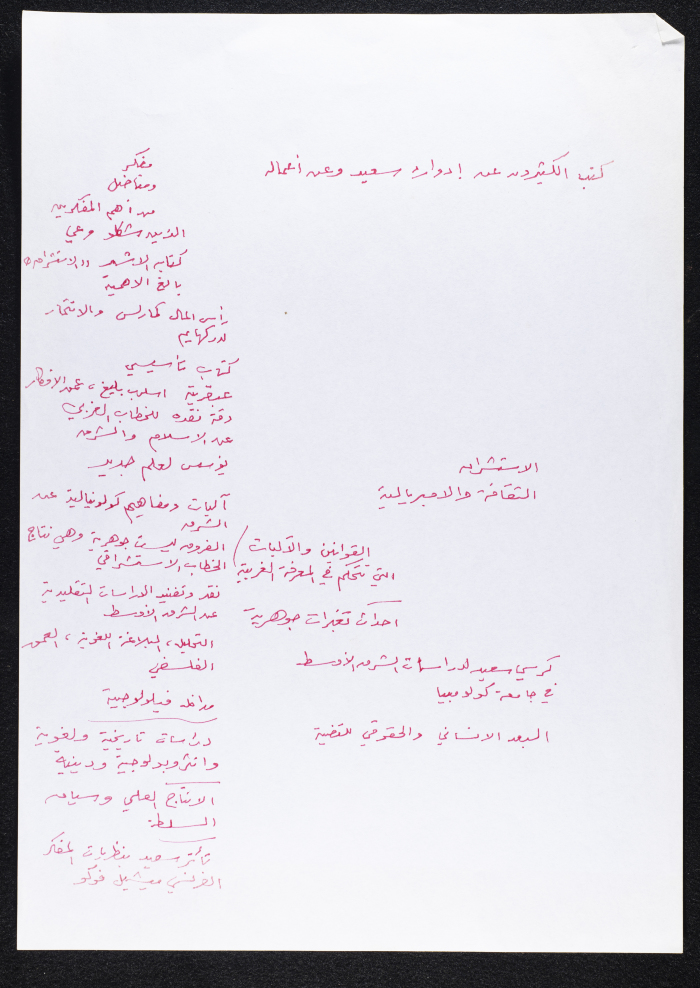 كتب الكثيرون عن إدوارد سعيد وعن أعماله
الاستشراق
الثقافة والامبريالية
القوانين والآليات
التي تتحكم في المعرفة الغربية
احداث تغيرات جوهرية
كرسي سعيد لدراسات الشرق الأوسط
في جامعة كولومبيا
البعد الانساني والحقوقي للقضية
مفكر
ومناضل
من أهم المفكرين
الذين شكلو وعي
كتابه الاشهر "الاستشراق"
بالغ الاهمية
رأس المال لماركس والانتحار
لدركهايم
كتاب تأسيسي
عبقرية اسلوب بليغ، عمق الافكار
دقة نقده للخطاب الغربي
عن الاسلام والشرق
يؤسس لعلم جديد
آليات ومفاهيم كولونيالية عن
الشرق
الفروق ليست جوهرية وهي نتاج
الخطاب الاستشراقي
نقد وتفنيد الدراسات التقليدية
عن الشرق الأوسط
التحليل، البلاغة اللغوية، العمق
الفلسفي
مداخل فيلولوجية
دراسات تاريخية ولغوية
وانثروبولوجية ودينية
الانتاج العلمي وسياق
السلطة
تأثر سعيد بنظريات المفكر
الفرنسي ميشيل فوكو